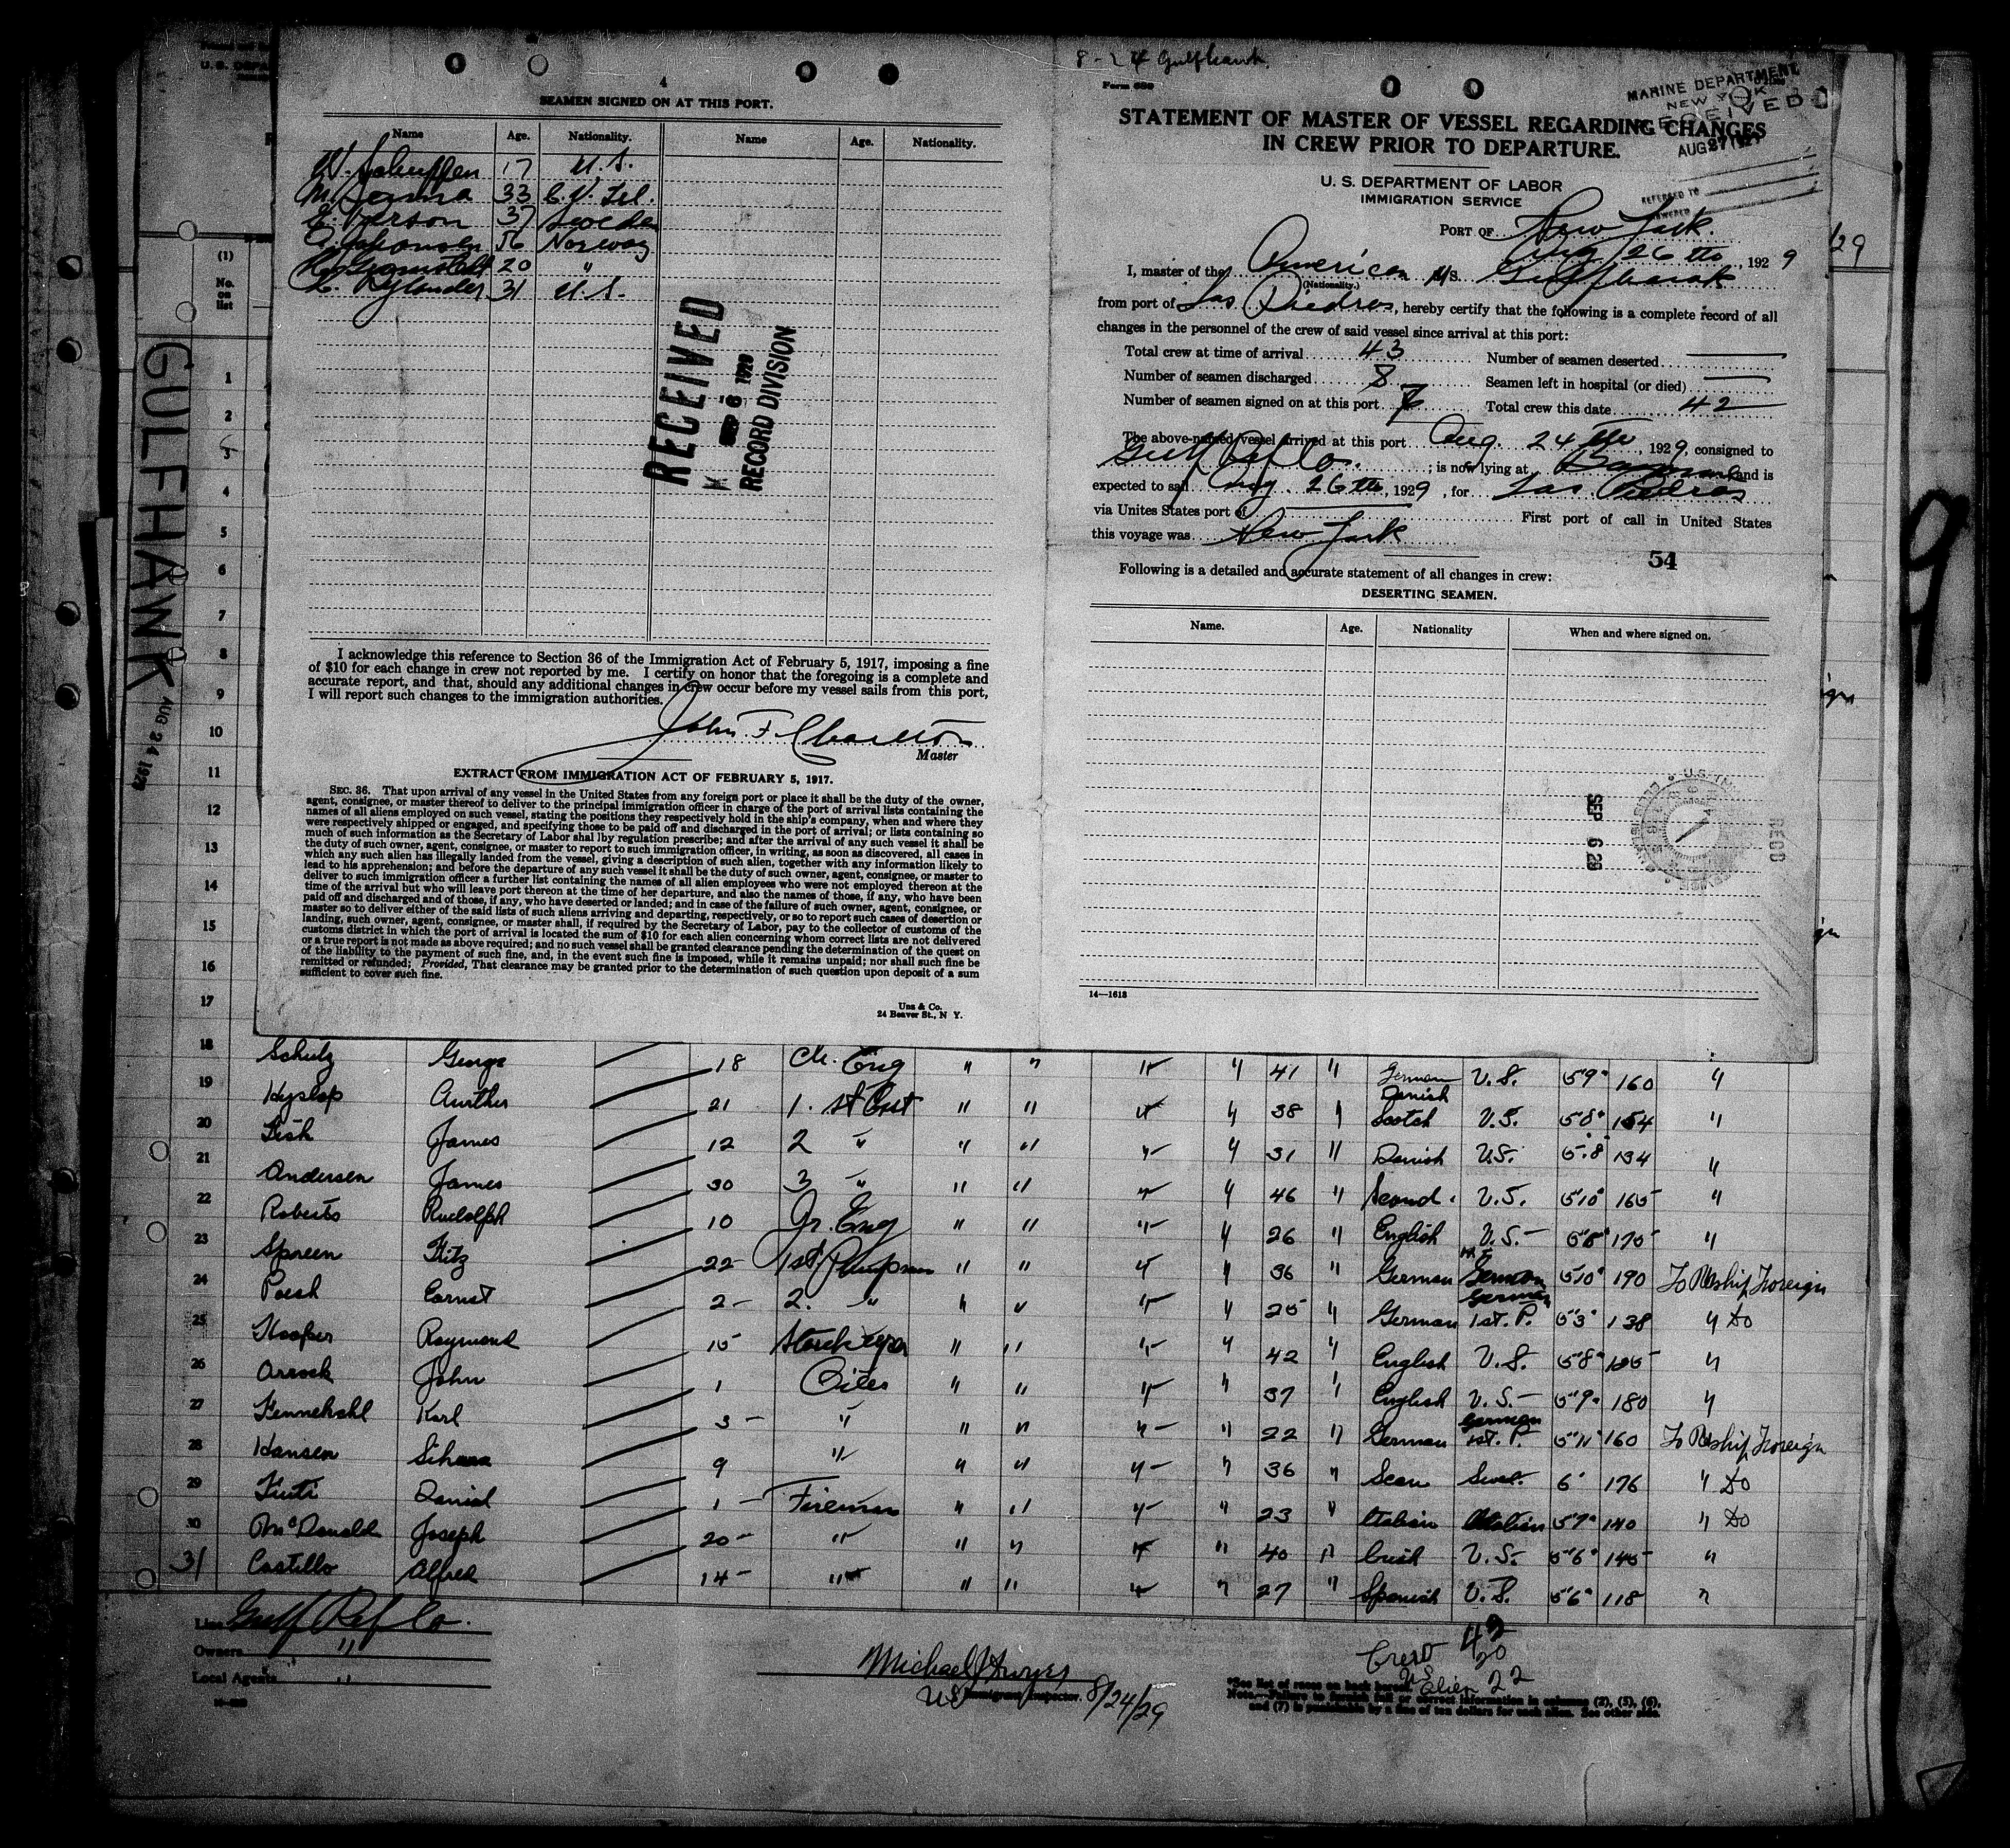 4
SEAMEN SIGNED ON AT THIS PORT.
Name Age. Nationality. Name Age. Nationality.
17 U.S.
33
37 Sweden
56 Norway
20 "
31 U.S.
RECEIVED
SEP 6 1929
RECORD DIVISION
I acknowledge this reference to Section 36 of the Immigration Act of February 5, 1917, imposing a fine
of $10 for each change in crew not reported by me. I certify on honor that the foregoing is a complete and
accurate report, and that, should any additional changes in crew occur before my vessel sails from this port,
I will report such changes to the immigration authorities.
John F. Charlton
Master
EXTRACT FROM IMMIGRATION ACT OF FEBRUARY 5, 1917.
SEC. 36. That upon arrival of any vessel in the United States from any foreign port or place it shall be the duty of the owner,
agent, consignee, or master thereof to deliver to the principal immigration officer in charge of the port of arrival lists containing the
names of all aliens employed on such vessel, stating the positions they respectively hold in the ship's company, when and where they
were respectively shipped or engaged, and specifying those to be paid off and discharged in the port of arrival; or lists containing so
much of such information as the Secretary of Labor shal lby regulation prescribe; and after the arrival of any such vessel it shall be
the duty of such owner, agent, consignee, or master to report to such immigration officer, in writing, as soon as discovered, all cases in
which any such alien has illegally landed from the vessel, giving a description of such alien, together with any information likely to
lead to his apprehension; and before the departure of any such vessel it shall be the duty of such owner, agent, consignee, or master to
deliver to such immigration officer a further list containing the names of all alien employees who were not employed thereon at the
time of the arrival but who will leave port thereon at the time of her departure, and also the names of those, if any, who have been
paid off and discharged and of those, if any, who have deserted or landed; and in case of the failure of such owner, agent, consignee, or
master so to deliver either of the said lists of such aliens arriving and departing, respectively, or so to report such cases of desertion or
landing, such owner, agent, consignee, or master shall, if required by the Secretary of Labor, pay to the collector of customs of the
customs district in which the port of arrival is located the sum of $10 for each alien concerning whom correct lists are not delivered
or a true report is not made as above required; and no such vessel shall be granted clearance pending the determination of the quest on
of the liability to the payment of such fine, and, in the event such fine is imposed, while it remains unpaid; nor shall such fine be
remitted or refunded; Provided, That clearance may be granted prior to the determination of such question upon deposit of a sum
sufficient to cover such fine.
Unz & Co.
24 Beaver St., N Y.
8-24 Gulfhawk
Form 689
MARINE DEPARTMENT
NEW YORK
RECEIVED
AUG 27 1929
REFERRED TO
ANSWERED
STATEMENT OF MASTER OF VESSEL REGARDING CHANGES
IN CREW PRIOR TO DEPARTURE.
U. S. DEPARTMENT OF LABOR
IMMIGRATION SERVICE
PORT OF New York.
Aug 26th, 1929
I, master of the American M/S. Gulfhawk
(Nationality.)
from port of Las Piedras, hereby certify that the following is a complete record of all
changes in the personnel of the crew of said vessel since arrival at this port:
Total crew at time of arrival 43 Number of seamen deserted
Number of seamen discharged 8 Seamen left in hospital (or died)
Number of seamen signed on at this port 7 Total crew this date 42
The above-named vessel arrived at this port Aug. 24th, 1929, consigned to
Gulf Ref Co. ; is now lying at Bayonne and is
expected to sail Aug. 26th, 1929, for Las Piedras
via Unites States port of First port of call in United States
this voyage was New York
54
Following is a detailed and accurate statement of all changes in crew:
DESERTING SEAMEN.
Name. Age. Nationality When and where signed on.
SEP 6 29
14—1618
GULFHAWK AUG 24 192
(1)
No. on list
1
2
3
4
5
6
7
8
9
10
11
12
13
14
15
16
17
18 Schulz George 18 Ch. Eng " " " " 41 " German U.S. 5'9" 160 "
19 Hyslop Aurther 21 1. st Asst " " " " 38 " Scotch U.S. 5'8" 154 "
20 Fish James 12 2 " " " " " 31 " Danish U.S. 5'8" 134 "
21 Andersen James 30 3 " " " " " 46 " Scand. U.S. 5'10" 165 "
22 Roberts Rudolph 10 Jr. Eng " " " " 26 " English U.S. 5'8" 175 "
23 Spreen Fitz 22 1st Pumpman " " " " 36 " German German 5'10" 190 To Reship Foreign
24 Posh Earnst 2 2. " " " " " 25 " German German 1st. P. 5'3" 138 " Do
25 Hooper Raymond 15 Storekeeper " " " " 42 " English U.S. 5'8" "
26 John 1 Oiler " " " " 37 " English U.S. 5'9" 180 "
27 Karl 3 " " " " " 22 " German German 1st. P. 5'11" 160 To Reship Foreign
28 Hansen 9 " " " " " 36 " Scan 6' 176 " Do
29 Daniel 1 Fireman " " " " 23 " Italian Italian 5'7" 140 " Do
30 McDonald Joseph 20 " " " " " 40 " Irish U.S. 5'6" 145 "
31 Castillo Alfred 14 " " " " " 27 " Spanish U.S. 5'6" 118 "
Line Gulf Ref Co.
Owners "
Local Agents "
Immigrant Inspector. 8/24/29
Crew 42
US 20
Alien 22
*See list of races on back hereof.
Note.—Failure to furnish full or correct information in columns (2), (5), (6),
and (7) is punishable by a fine of ten dollars for each alien. See other side.
9